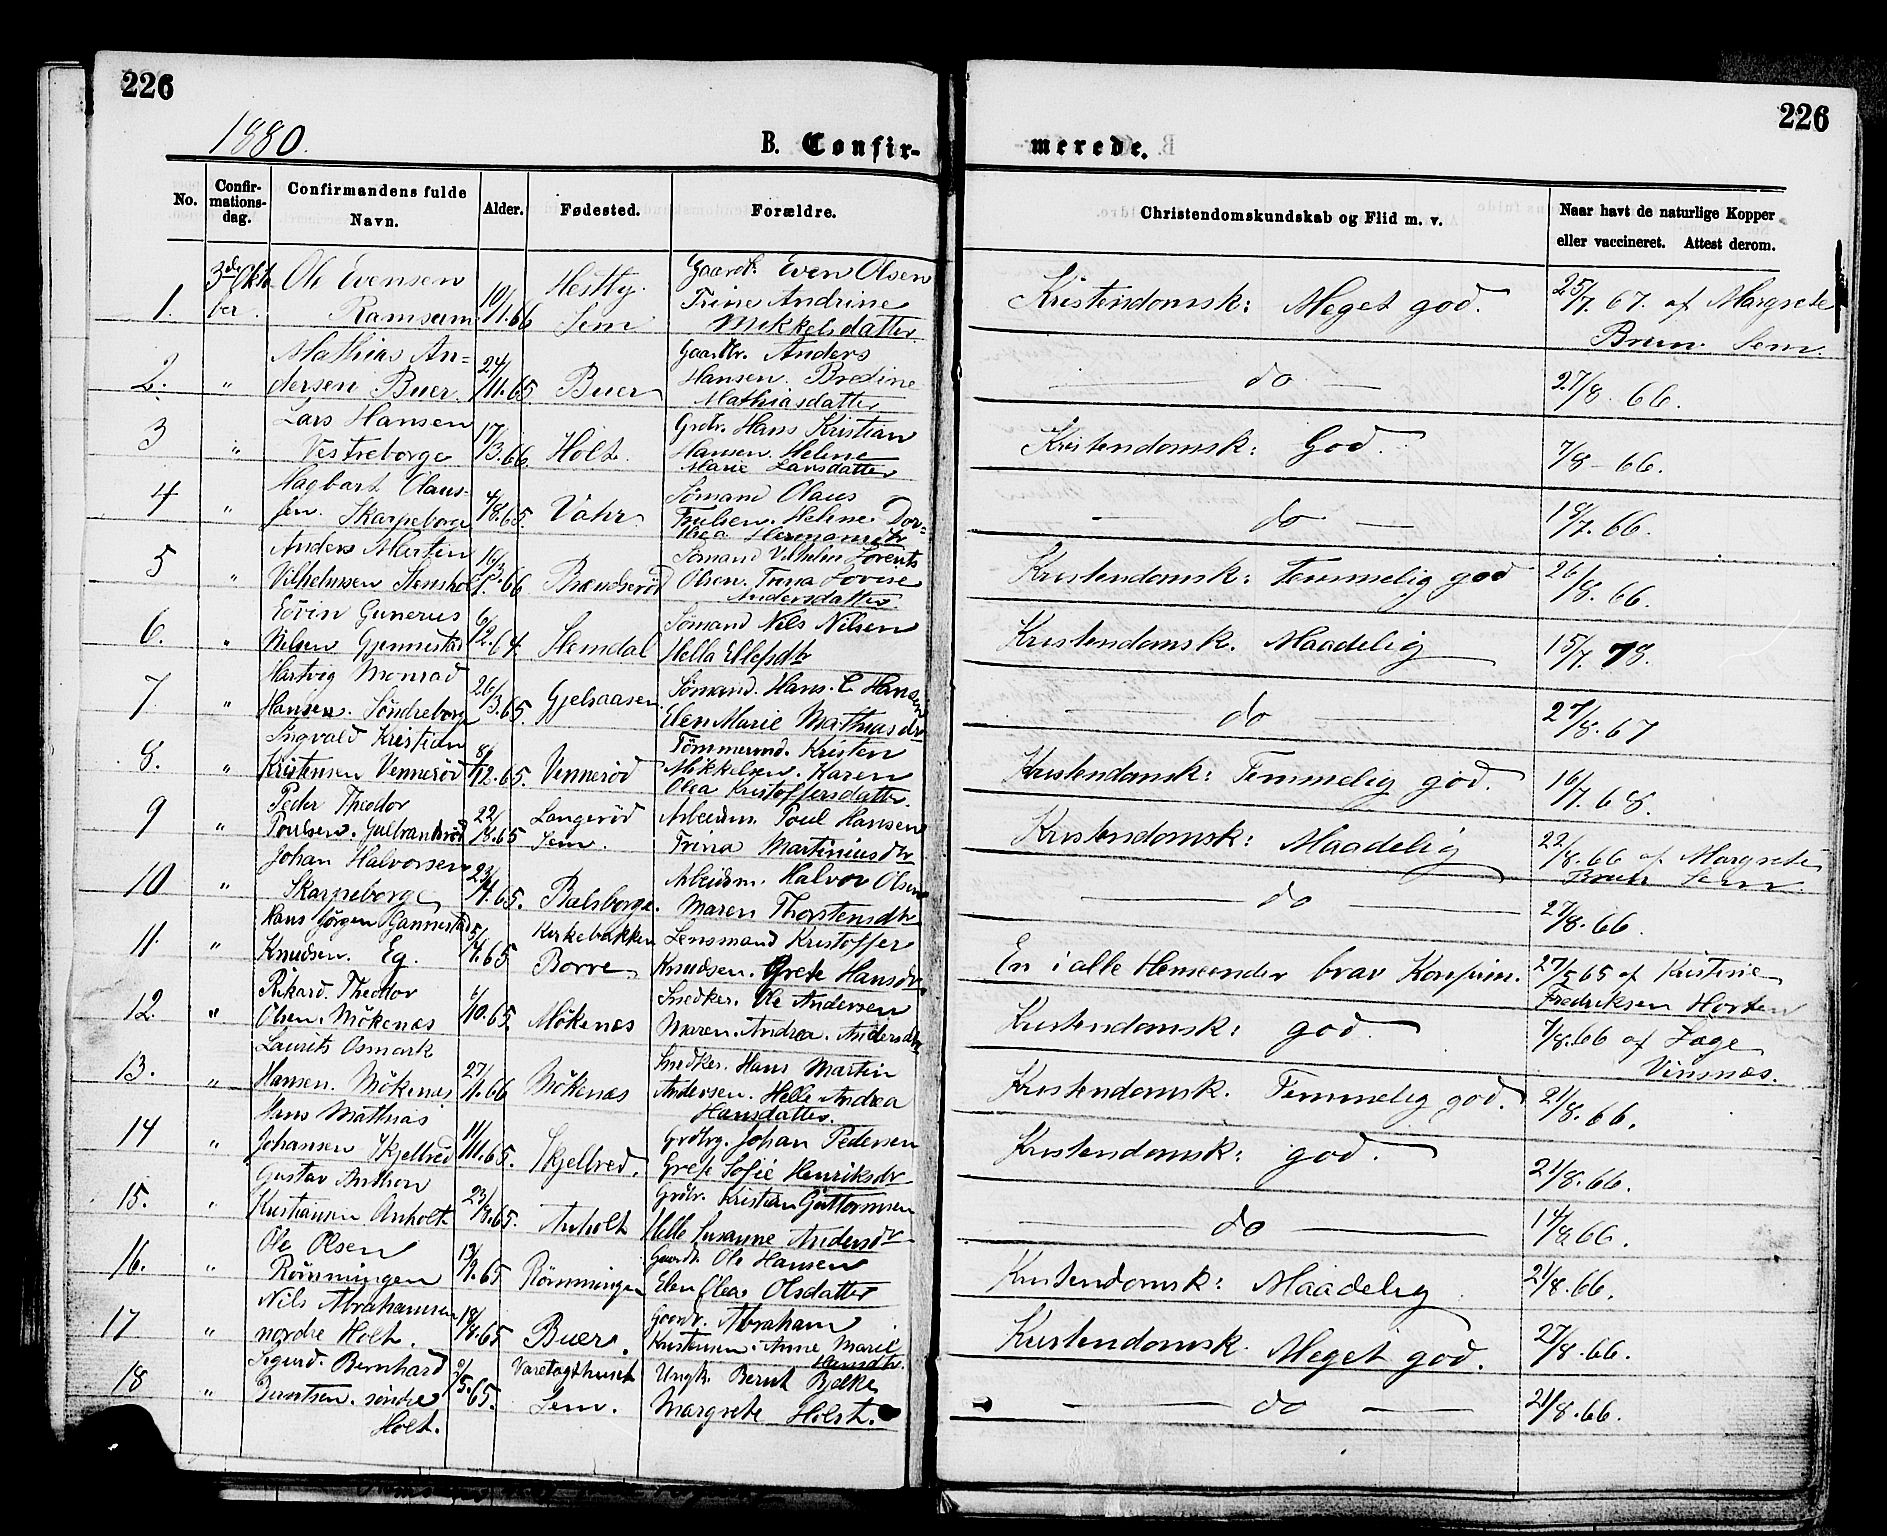 226
226
1880.
B. Confir-
merede.
No.
Confir-
mations-
dag.
Confirmandens fulde
Navn.
Alder.
Fødested.
Forældre.
Christendomskundskab og Flid m. v.
Naar havt de naturlige Kopper
eller vaccineret. Attest derom.
1.
3de Okto
ber.
Ole Evensen
Ramsum
10/1.66
Sem
Gaardb. Even Olsen
Trine Andrine
Mikkelsdatter
Kristendomsk: Meget god.
25/7.67. af Margrete
Bruun. Sem.
2. "
Mathias An=
dersen Buer.
24/11.65
Buer
Gaardbr. Anders
Hansen. Bredine
Mathiasdatter
do
27/8.66.
3 "
Lars Hansen
Vestreborge
17/3.66
Holt.
Grdbr. Hans Kristian
Hansen. Helene
Marie Larsdatter
Kristendomsk: God.
7/8-66.
4 "
Hagbart Olaus-
sen. Skarpeborge
4/8.65.
Sömand Olaus
Helene Dor=
thea
do
19/7.66.
5 "
Anders Martin
Vilhelmsen
Sömand Vilhelm Lorents
Olsen. Trina Lovise
Andersdatter.
Kristendomsk: Temmelig god
26/8.66.
6. "
Gunerus
Nilsen Gjennestad
6/12.64.
Hemdal
Sömand Nils Nilsen
Hella Ellefsdtr
Kristendomsk. Maadelig
15/7.78.
7 "
Hartvig Monrad
Hansen. Söndreborge
26/3.65.
Gjelsaasen.
Sömand. Hans. C Hansen
Elen Marie Mathiasdtr
do
27/8.67
8. "
Ingvald Kristian
Kristensen Venneröd
8/12.65.
Venneröd
Tömmermd. Kristen
Mikkelsen. Karen
Olea Kristoffersdatter.
Kristendomsk: Temmelig god.
16/7.68.
9 "
Peder Theodor
Poulsen. Gulbrandsröd
22/8.65
Langeröd
Sem.
Arbeidsm. Poul Hansen
Trina Martiniusdtr
Kristendomsk: Maadelig
22/8.66 af Margrete
Bruun Sem
10 "
Johan Halvorsen
Skarpeborge
23/4.65.
Bælsborge.
Arbeidsm. Halvor Olsen
Maren Thorstensdtr
do
27/8.66.
11. "
Hans Jörgen Gannestad
Knudsen. Eg.
5/4.65
Kirkebakken
Borre
Lensmand Kristoffer
Knudsen. Grete Hansdtr.
En i alle Henseender brav Konfirm.
27/5 65 af Kristine
Fredriksen Horten
12. "
Rikard. Theodor
Olsen. Mökenæs
6/10.65.
Mökenæs
Snedker. Ole Andersen
Maren. Andrea. Andersdtr
Kristendomsk: god
7/8.66 af Lage
Vinsnæs.
13. "
Laurits Osmark
Hansen. Mökenæs
27/1.66
Mökenæs
Snedker. Hans Martin
Andersen. Helle Andrea
Hansdatter.
Kristendomsk. Temmelig god.
21/8.66.
14 "
Hans Mathias
Johansen Skjelbred
11/11.65.
Skjelbred.
Grdbrg. Johan Pedersen
Grete Sofie Henriksdtr
Kristendomsk: god.
21/8.66.
15. "
Gustav Anthon
Kristiansen Anholt
23/8.65.
Anholt
Grdbr. Kristian Guttormsen
Helle Susanne Andersdtr
do
14/8.66.
16. "
Ole Olsen
Römmingen
13/9.65
Römmingen
Gaardb. Ole Hansen
Elen Olea Olsdatter
Kristendomsk: Maadelig
21/8.66.
17 "
Nils Abrahamsen
nordre Holt.
18/8.65
Buer.
Gaardbr. Abraham
Kristensen. Anne Marie
Hansdtr.
Kristendomsk. Meget god.
27/8.66.
18 "
Sigurd. Bernhard
Berntsen. söndre
Holt.
9/5.65.
Varetægthuset
Sem.
Ungk. Bernt Bakke
Margrete Holst.
do
21/8.66.